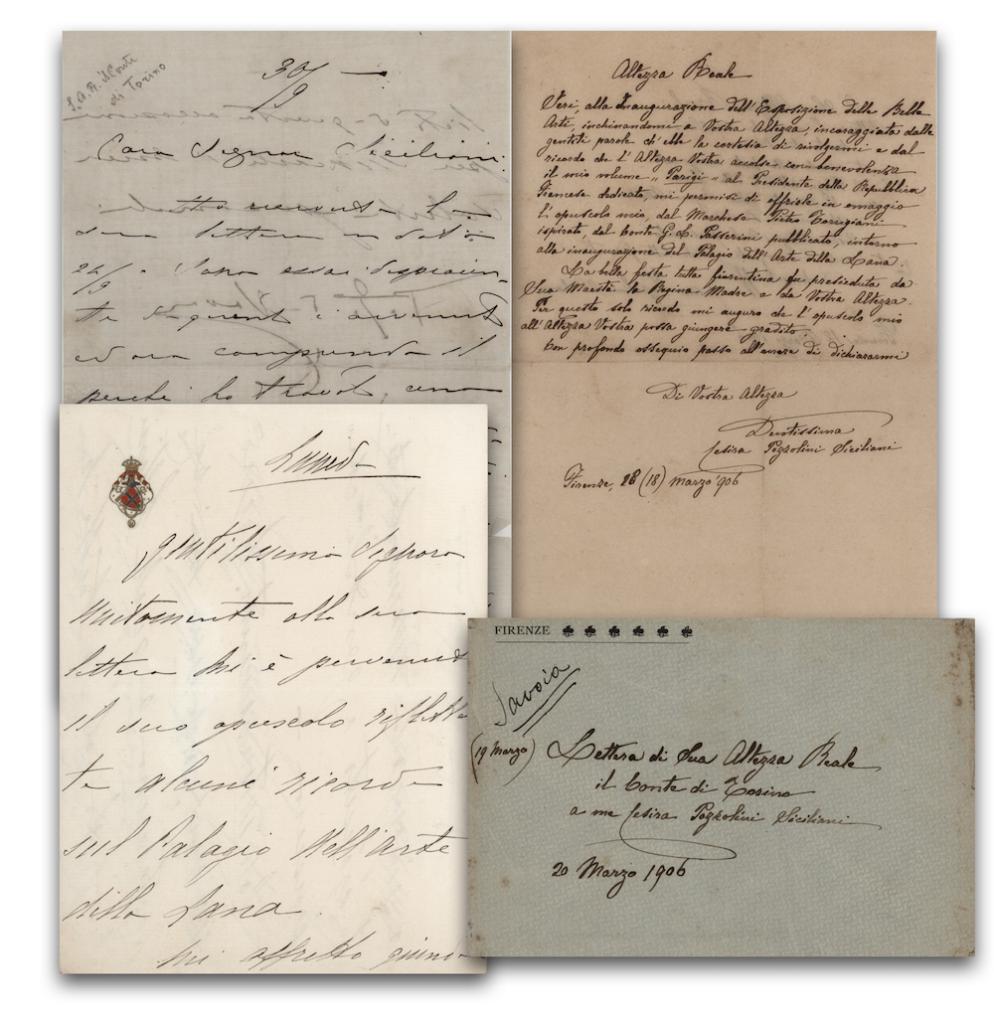 S.A.R. il Conte
di Torino
30/9
Cara Signora Siciliani
ho ricevuto la
sua lettera in data
24/9. Sono assai
ed ora comprendo il
perchè ho trovato
Altezza Reale
Ieri, alla Inaugurazione dell'Esposizione delle Belle
Arti, inchinandomi a Vostra Altezza, incoraggiata dalle
gentili parole ch'ebbe la cortesia di rivolgermi e dal
ricordo che l'Altezza Vostra accolse con benevolenza
il mio volume „Parigi" al Presidente della Repubblica
Francese dedicato, mi permisi di offrirle in omaggio
l'opuscolo mio, dal Marchese Pietro Torrigiani
ispirato, dal Conte G. L. Passerini pubblicato, intorno
alla inaugurazione del Palagio dell'Arte della Lana.
La bella festa tutta fiorentina fu presieduta da
Sua Maestà la Regina Madre e da Vostra Altezza.
Per questo solo ricordo mi auguro che l'opuscolo mio
all'Altezza Vostra possa giungere gradito.
Con profondo ossequio passo all'onore di dichiararmi
Di Vostra Altezza
Devotissima
Cesira Pozzolini Siciliani
Firenze, 18 (18) Marzo '906
Lunedì
Gentilissima Signora
Unitamente alla sua
lettera mi è pervenuto
il suo opuscolo rifletten
te alcuni ricordi
sul Palagio dell'arte
della Lana.
Mi affretto
FIRENZE
Savoia
(19 Marzo) Lettera di Sua Altezza Reale
il Conte di Torino
a me Cesira Pozzolini Siciliani
20 Marzo 1906